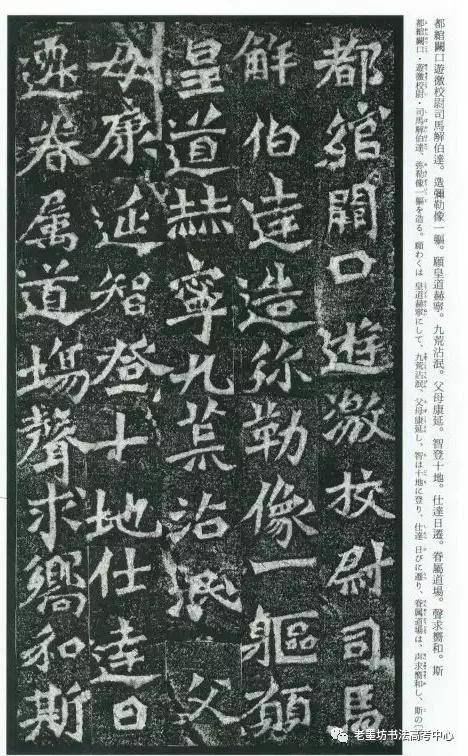 都綰闕口遊激校尉司馬解伯達。造彌勒像一軀。願皇道赫寧。九荒沾泯。父母康延。智登十地。仕達日遷。眷屬道場。聲求嚮和。斯
都綰闕口・遊激校尉・司馬解伯達、弥勒像一軀を造る。願わくは 皇道赫寧にして、九荒沾泯、父母康延し、智は十地に登り、仕達 日びに遷り、眷属道場は、声求嚮和し、斯の
都綰闕口遊激校尉司馬
解伯達造弥勒像一軀願
皇道赫寧九荒沾泯父
母康延智登十地仕達日
遷眷属道塲聲求嚮和斯
老童坊书法高考中心